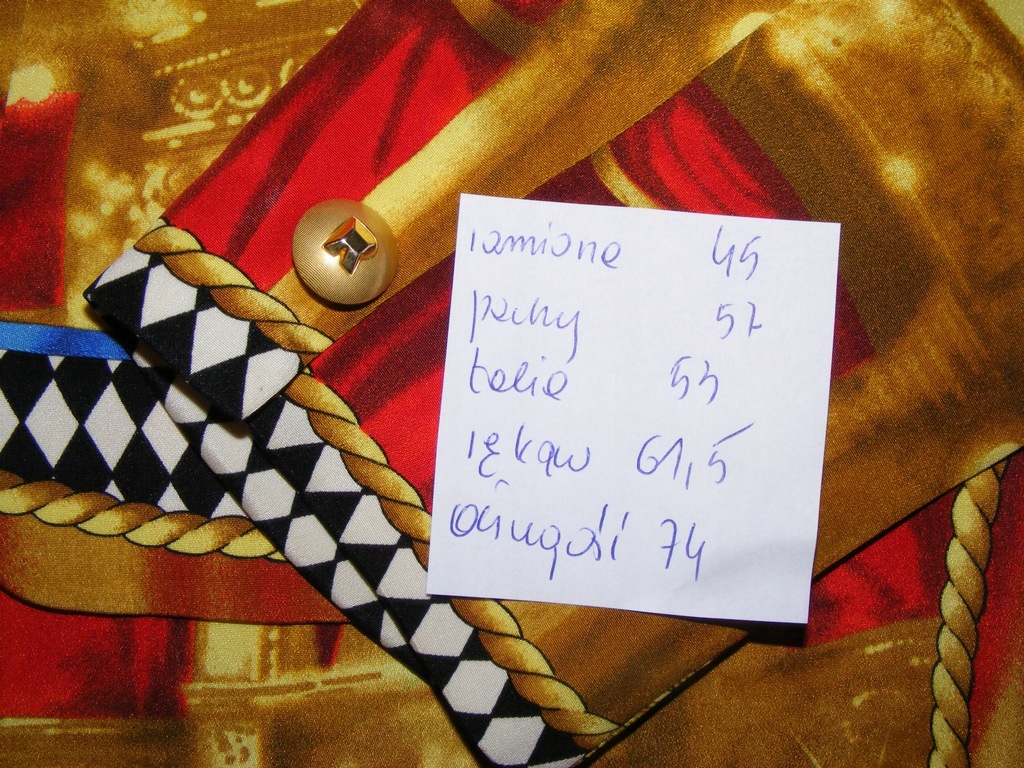 ramiona 45
pachy 57
talia 53
rękaw 61,5
długość 74